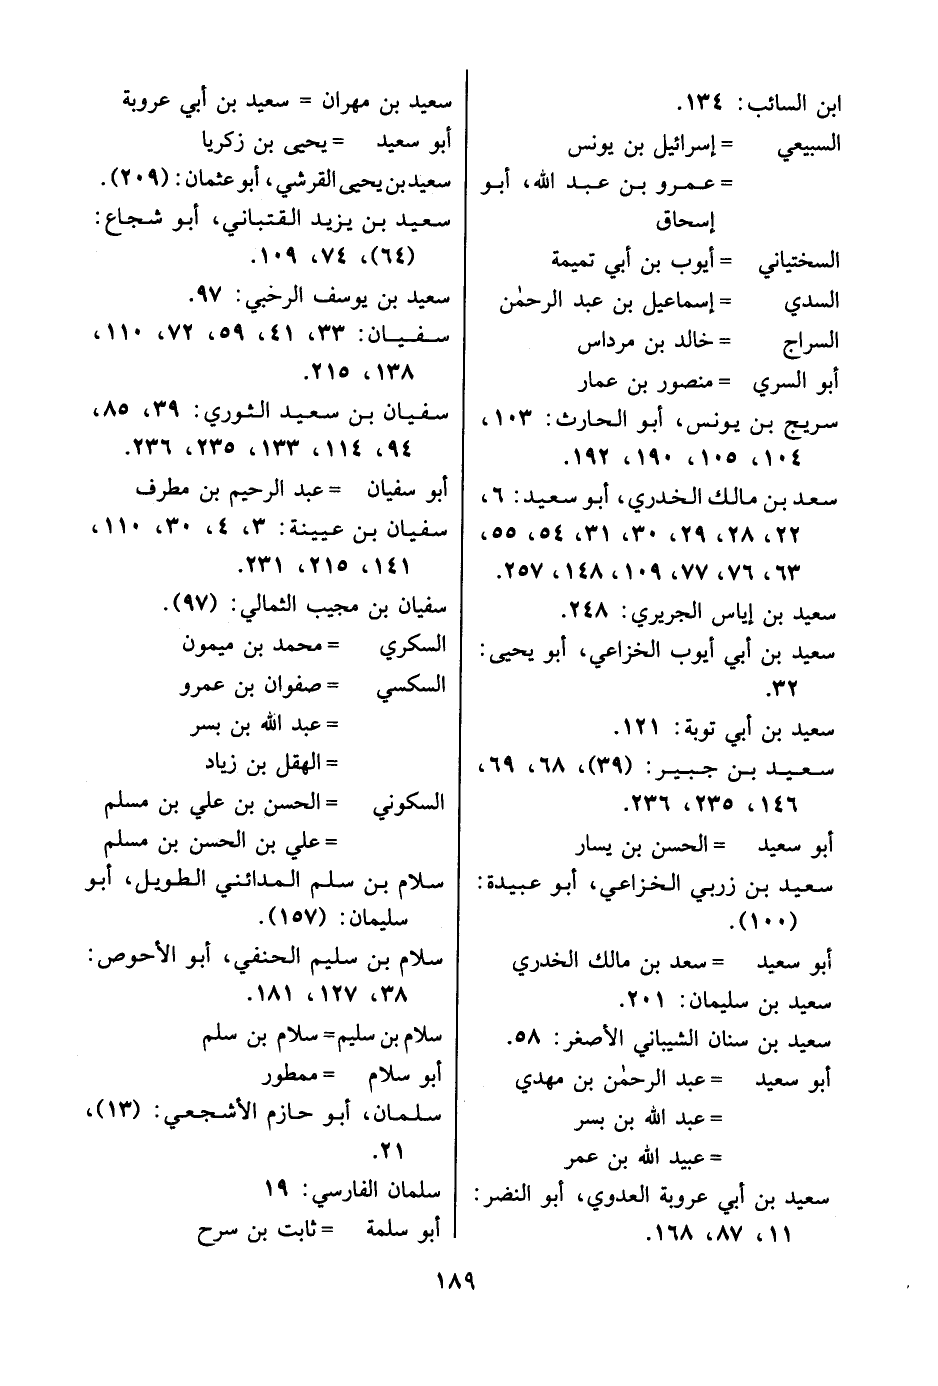 ابن السائب: ١٣٤.
السبيعي = إسرائيل بن يونس
= عمرو بن عبد الله، أبو
إسحاق
السختياني = أيوب بن أبي تميمة
السدي = إسماعيل بن عبد الرحمٰن
السراج = خالد بن مرداس
أبو السري = منصور بن عمار
سريج بن يونس، أبو الحارث: ١٠٣،
١٠٤، ١٠٥، ١٩٠، ١٩٢.
سعد بن مالك الخدري، أبو سعيد: ٦،
٢٢، ٢٨، ٢٩، ٣٠، ٣١، ٥٤، ٥٥،
٦٣، ٧٦، ٧٧، ١٠٩، ١٤٨، ٢٥٧.
سعيد بن إياس الجريري: ٢٤٨.
سعيد بن أبي أيوب الخزاعي، أبو يحيى:
٣٢.
سعيد بن أبي توبة: ١٢١.
سعيد بن جبير: (٣٩)، ٦٨، ٦٩،
١٤٦، ٢٣٥، ٢٣٦.
أبو سعيد = الحسن بن يسار
سعيد بن زربي الخزاعي، أبو عبيدة:
(١٠٠).
أبو سعيد = سعد بن مالك الخدري
سعيد بن سليمان: ٢٠١.
سعيد بن سنان الشيباني الأصغر: ٥٨.
أبو سعيد = عبد الرحمٰن بن مهدي
= عبد الله بن بسر
= عبيد الله بن عمر
سعيد بن أبي عروبة العدوي، أبو النضر:
١١، ٨٧، ١٦٨.
سعيد بن مهران = سعيد بن أبي عروبة
أبو سعيد = يحيى بن زكريا
سعيد بن يحيى القرشي، أبو عثمان: (٢٠٩).
سعيد بن يزيد القتباني، أبو شجاع:
(٦٤)، ٧٤، ١٠٩.
سعيد بن يوسف الرخبي: ٩٧.
سفيان: ٣٣، ٤١، ٥٩، ٧٢، ١١٠،
١٣٨، ٢١٥.
سفيان بن سعيد الثوري: ٣٩، ٨٥،
٩٤، ١١٤، ١٣٣، ٢٣٥، ٢٣٦.
أبو سفيان = عبد الرحيم بن مطرف
سفيان بن عيينة: ٣، ٤، ٣٠، ١١٠،
١٤١، ٢١٥، ٢٣١.
سفيان بن مجيب الثمالي: (٩٧).
السكري = محمد بن ميمون
السكسي = صفوان بن عمرو
= عبد الله بن بسر
= الهقل بن زياد
السكوني = الحسن بن علي بن مسلم
= علي بن الحسن بن مسلم
سلام بن سلم المدائني الطويل، أبو
سليمان: (١٥٧).
سلام بن سليم الحنفي، أبو الأحوص:
٣٨، ١٢٧، ١٨١.
سلام بن سليم = سلام بن سلم
أبو سلام = ممطور
سلمان، أبو حازم الأشجعي: (١٣)،
٢١.
سلمان الفارسي: ١٩
أبو سلمة = ثابت بن سرح
١٨٩